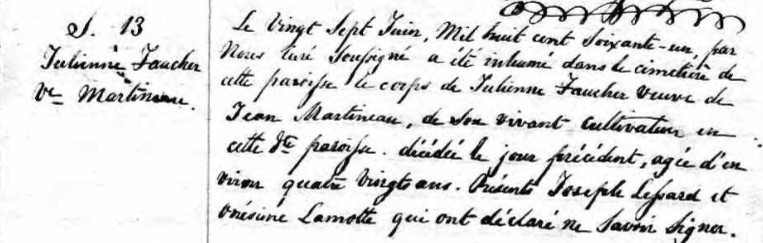 S. 13
Julienne Faucher
Ve Martineau.
Le vingt Sept Juin, Mil huit cent Soixante-un, par
Nous curé Soussigné a été inhumé dans le cimetière de
cette paroisse le corps de Julienne Faucher veuve de
Jean Martineau, de Son vivant cultivateur en
cette dte paroisse. décédée le jour précédent, agée d'en
viron quatre vingts ans. Présents Joseph Lessard et
Onésime Lamotte qui ont déclaré ne Savoir Signer.